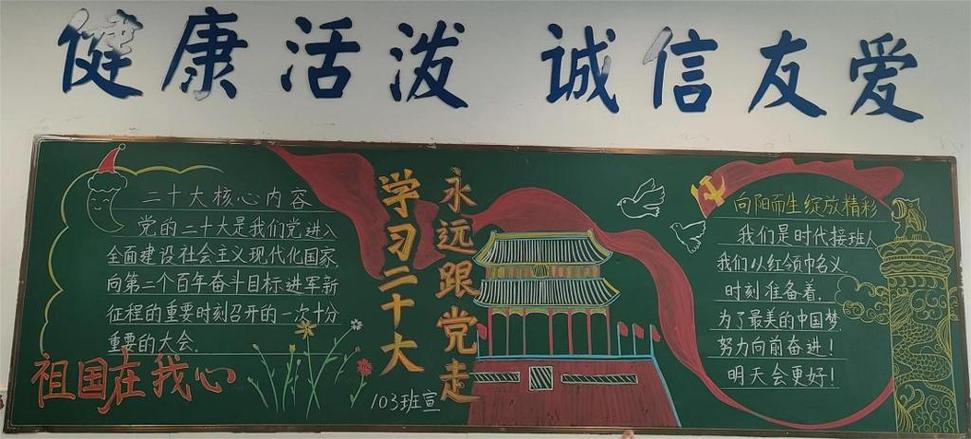 健康活泼 诚信友爱
二十大核心内容
党的二十大是我们党进入
全面建设社会主义现代化国家,
向第二个百年奋斗目标进军新
征程的重要时刻召开的一次十分
重要的大会.
祖国在我心
学习二十大
永远跟党走
103班宣
向阳而生绽放精彩
我们是时代接班人
我们以红领巾名义
时刻准备着,
为了最美的中国梦,
努力向前奋进!
明天会更好!